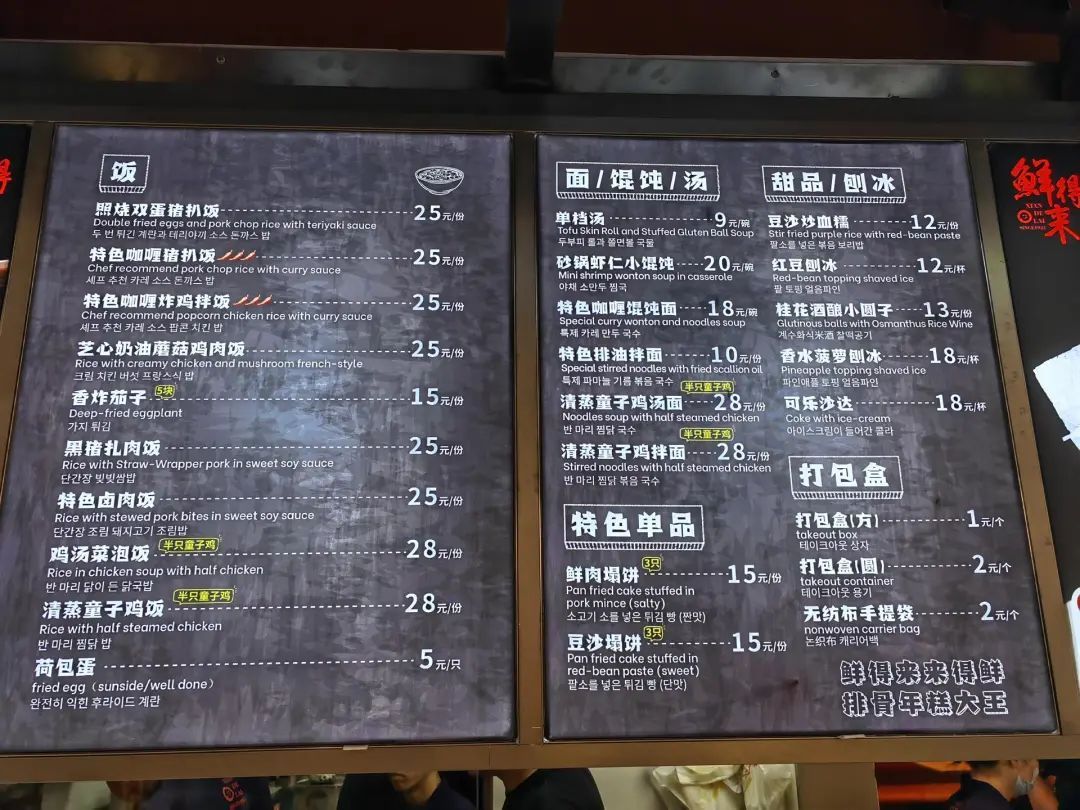 得
饭
照烧双蛋猪扒饭 25元/份
Double fried eggs and pork chop rice with teriyaki sauce
두 번 튀긴 계란과 테리야끼 소스 돈까스 밥
特色咖喱猪扒饭 25元/份
Chef recommend pork chop rice with curry sauce
셰프 추천 카레 소스 돈까스 밥
特色咖喱炸鸡拌饭 25元/份
Chef recommend popcorn chicken rice with curry sauce
셰프 추천 카레 소스 팝콘 치킨 밥
芝心奶油蘑菇鸡肉饭 25元/份
Rice with creamy chicken and mushroom french-style
크림 치킨 버섯 프랑스식 밥
香炸茄子 5块 15元/份
Deep-fried eggplant
가지 튀김
黑猪扎肉饭 25元/份
Rice with Straw-Wrapper pork in sweet soy sauce
단간장 빗빗쌈밥
特色卤肉饭 25元/份
Rice with stewed pork bites in sweet soy sauce
단간장 조림 돼지고기 조림밥
鸡汤菜泡饭 半只童子鸡 28元/份
Rice in chicken soup with half chicken
반 마리 닭이 든 닭국밥
清蒸童子鸡饭 半只童子鸡 28元/份
Rice with half steamed chicken
반 마리 찜닭 밥
荷包蛋 5元/只
fried egg（sunside/well done）
완전히 익힌 후라이드 계란
面/馄饨/汤
单档汤 9元/碗
Tofu Skin Roll and Stuffed Gluten Ball Soup
두부피 롤과 쫄면볼 국물
砂锅虾仁小馄饨 20元/碗
Mini shrimp wonton soup in casserole
야채 소만두 찜국
特色咖喱馄饨面 18元/碗
Special curry wonton and noodles soup
특제 카레 만두 국수
特色排油拌面 10元/份
Special stirred noodles with fried scallion oil
특제 파마늘 기름 볶음 국수
清蒸童子鸡汤面 半只童子鸡 28元/份
Noodles soup with half steamed chicken
반 마리 찜닭 국수
清蒸童子鸡拌面 半只童子鸡 28元/份
Stirred noodles with half steamed chicken
반 마리 찜닭 볶음 국수
特色单品
鲜肉塌饼 3只 15元/份
Pan fried cake stuffed in
pork mince (salty)
소고기 소를 넣은 튀김 빵 (짠맛)
豆沙塌饼 3只 15元/份
Pan fried cake stuffed in
red-bean paste (sweet)
팥소를 넣은 튀김 빵 (단맛)
甜品/刨冰
豆沙炒血糯 12元/份
Stir fried purple rice with red-bean paste
팥소를 넣은 볶음 보리밥
红豆刨冰 12元/杯
Red-bean topping shaved ice
팥 토핑 얼음파인
桂花酒酿小圆子 13元/份
Glutinous balls with Osmanthus Rice Wine
계수화식米酒 찰떡공기
香水菠萝刨冰 18元/杯
Pineapple topping shaved ice
파인애플 토핑 얼음파인
可乐沙达 18元/杯
Coke with ice-cream
아이스크림이 들어간 콜라
打包盒
打包盒(方) 1元/个
takeout box
테이크아웃 상자
打包盒(圆) 2元/个
takeout container
테이크아웃 용기
无纺布手提袋 2元/个
nonwoven carrier bag
논织布 캐리어백
鲜得来来得鲜
排骨年糕大王
鲜得来
XIAN
DE
LAI
SINCE1921